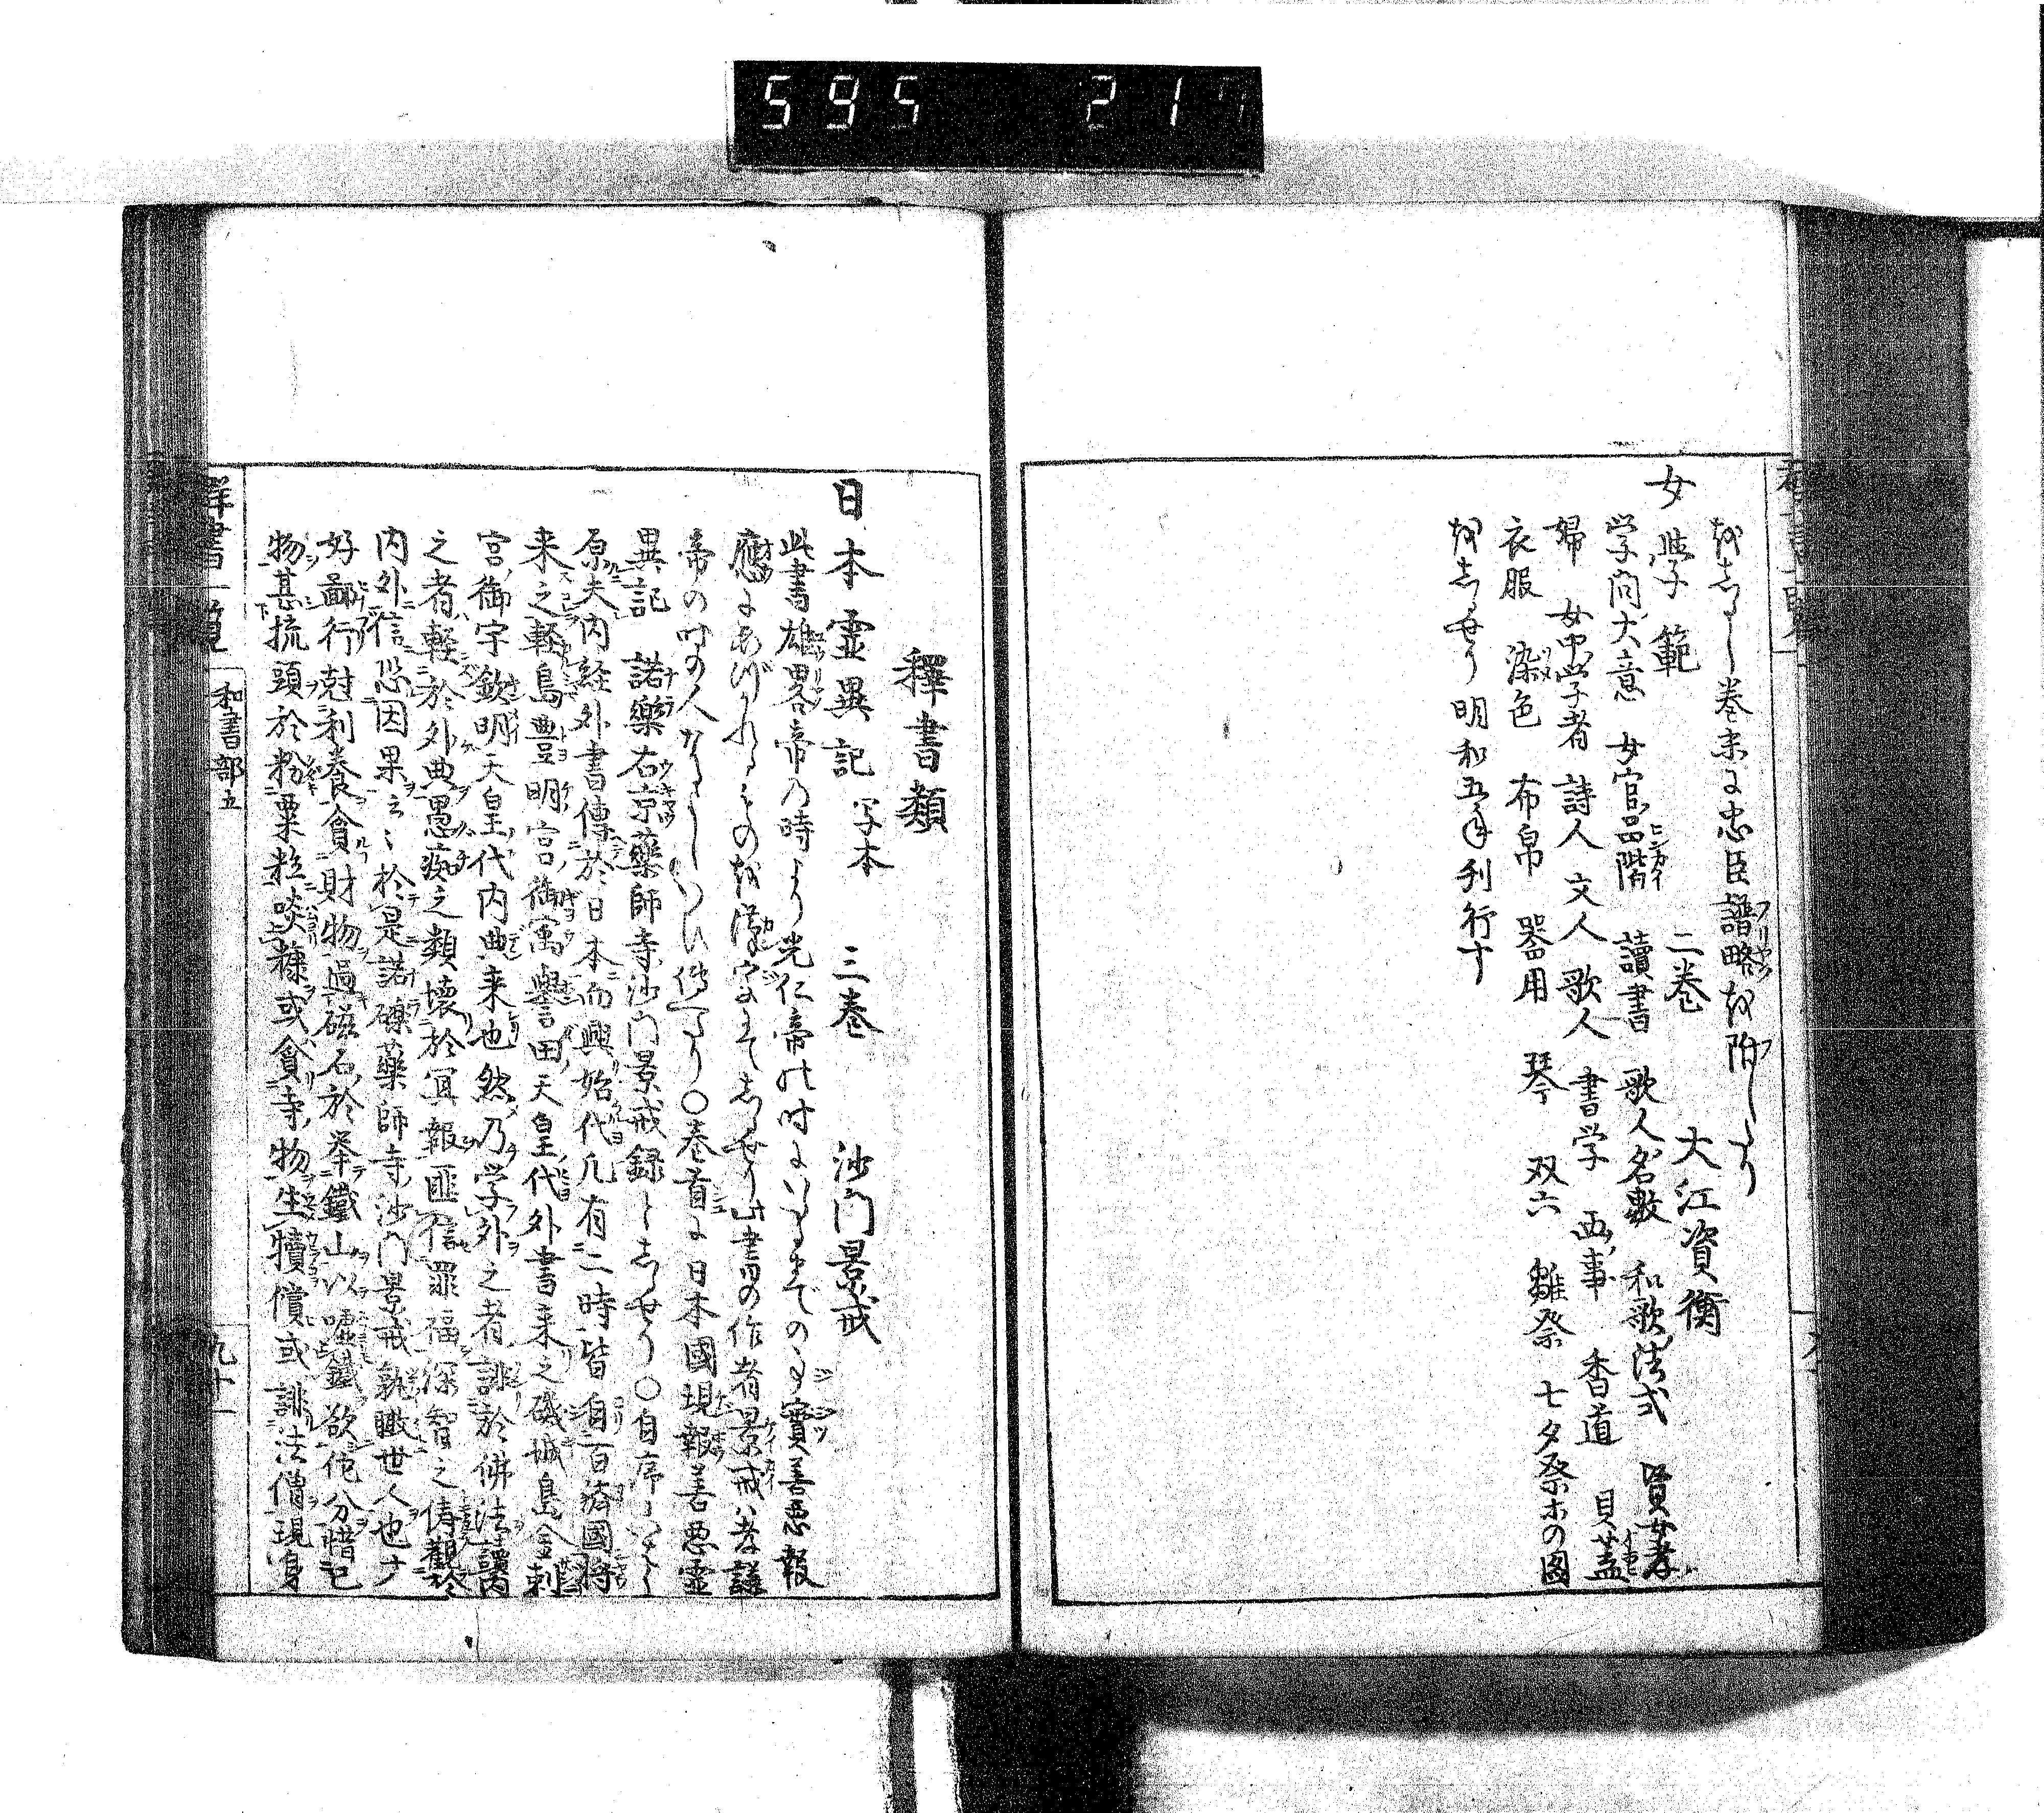 595 217
をしるし巻末に忠臣譜略を附したり
女学範 二巻 大江資衡
学問大意 女官品階 讀書 歌人名数 和歌法式 賢女孝
婦 女中学者 詩人 文人 歌人 書学 画事 香道 貝蓋
衣服 染色 布帛 器用 琴 双六 雛祭 七夕祭ホの図
をしるせり明和五年刊行す
釋書類
日本霊異記 写本 三巻 沙門景戒
此書雄畧帝の時より光仁帝の時にいたるまでの事實善悪報
應にあづかれるものを漢字にてしるせり此書の作者景戒は孝謙
帝の時の人なるよしいひ傳へたり○巻首に日本國現報善悪霊
異記 諾樂右京藥師寺沙門景戒録としるせり○自序にいはく
原夫内経外書傳於日本而興始代凡有二時皆自百済國将
来之軽島豊明宮御宇譽田天皇代外書来之磯城島金刺
宮御宇欽明天皇代内典来也然乃学外之者誹於佛法讀内
之者軽於外典愚痴之類壊於冥報匪信罪福深智之儔觀於
内外信恐因果云〻於是諾磔藥師寺沙門景戒熟瞰世人也才
好鄙行尅利養貪財物過磁石於举鐵山以嘘鐵欲他分惜己
物甚抗頭於粉粟粒啖糠或貪寺物生犢償或誹法僧現身
群書一覧 和書部五 九十一